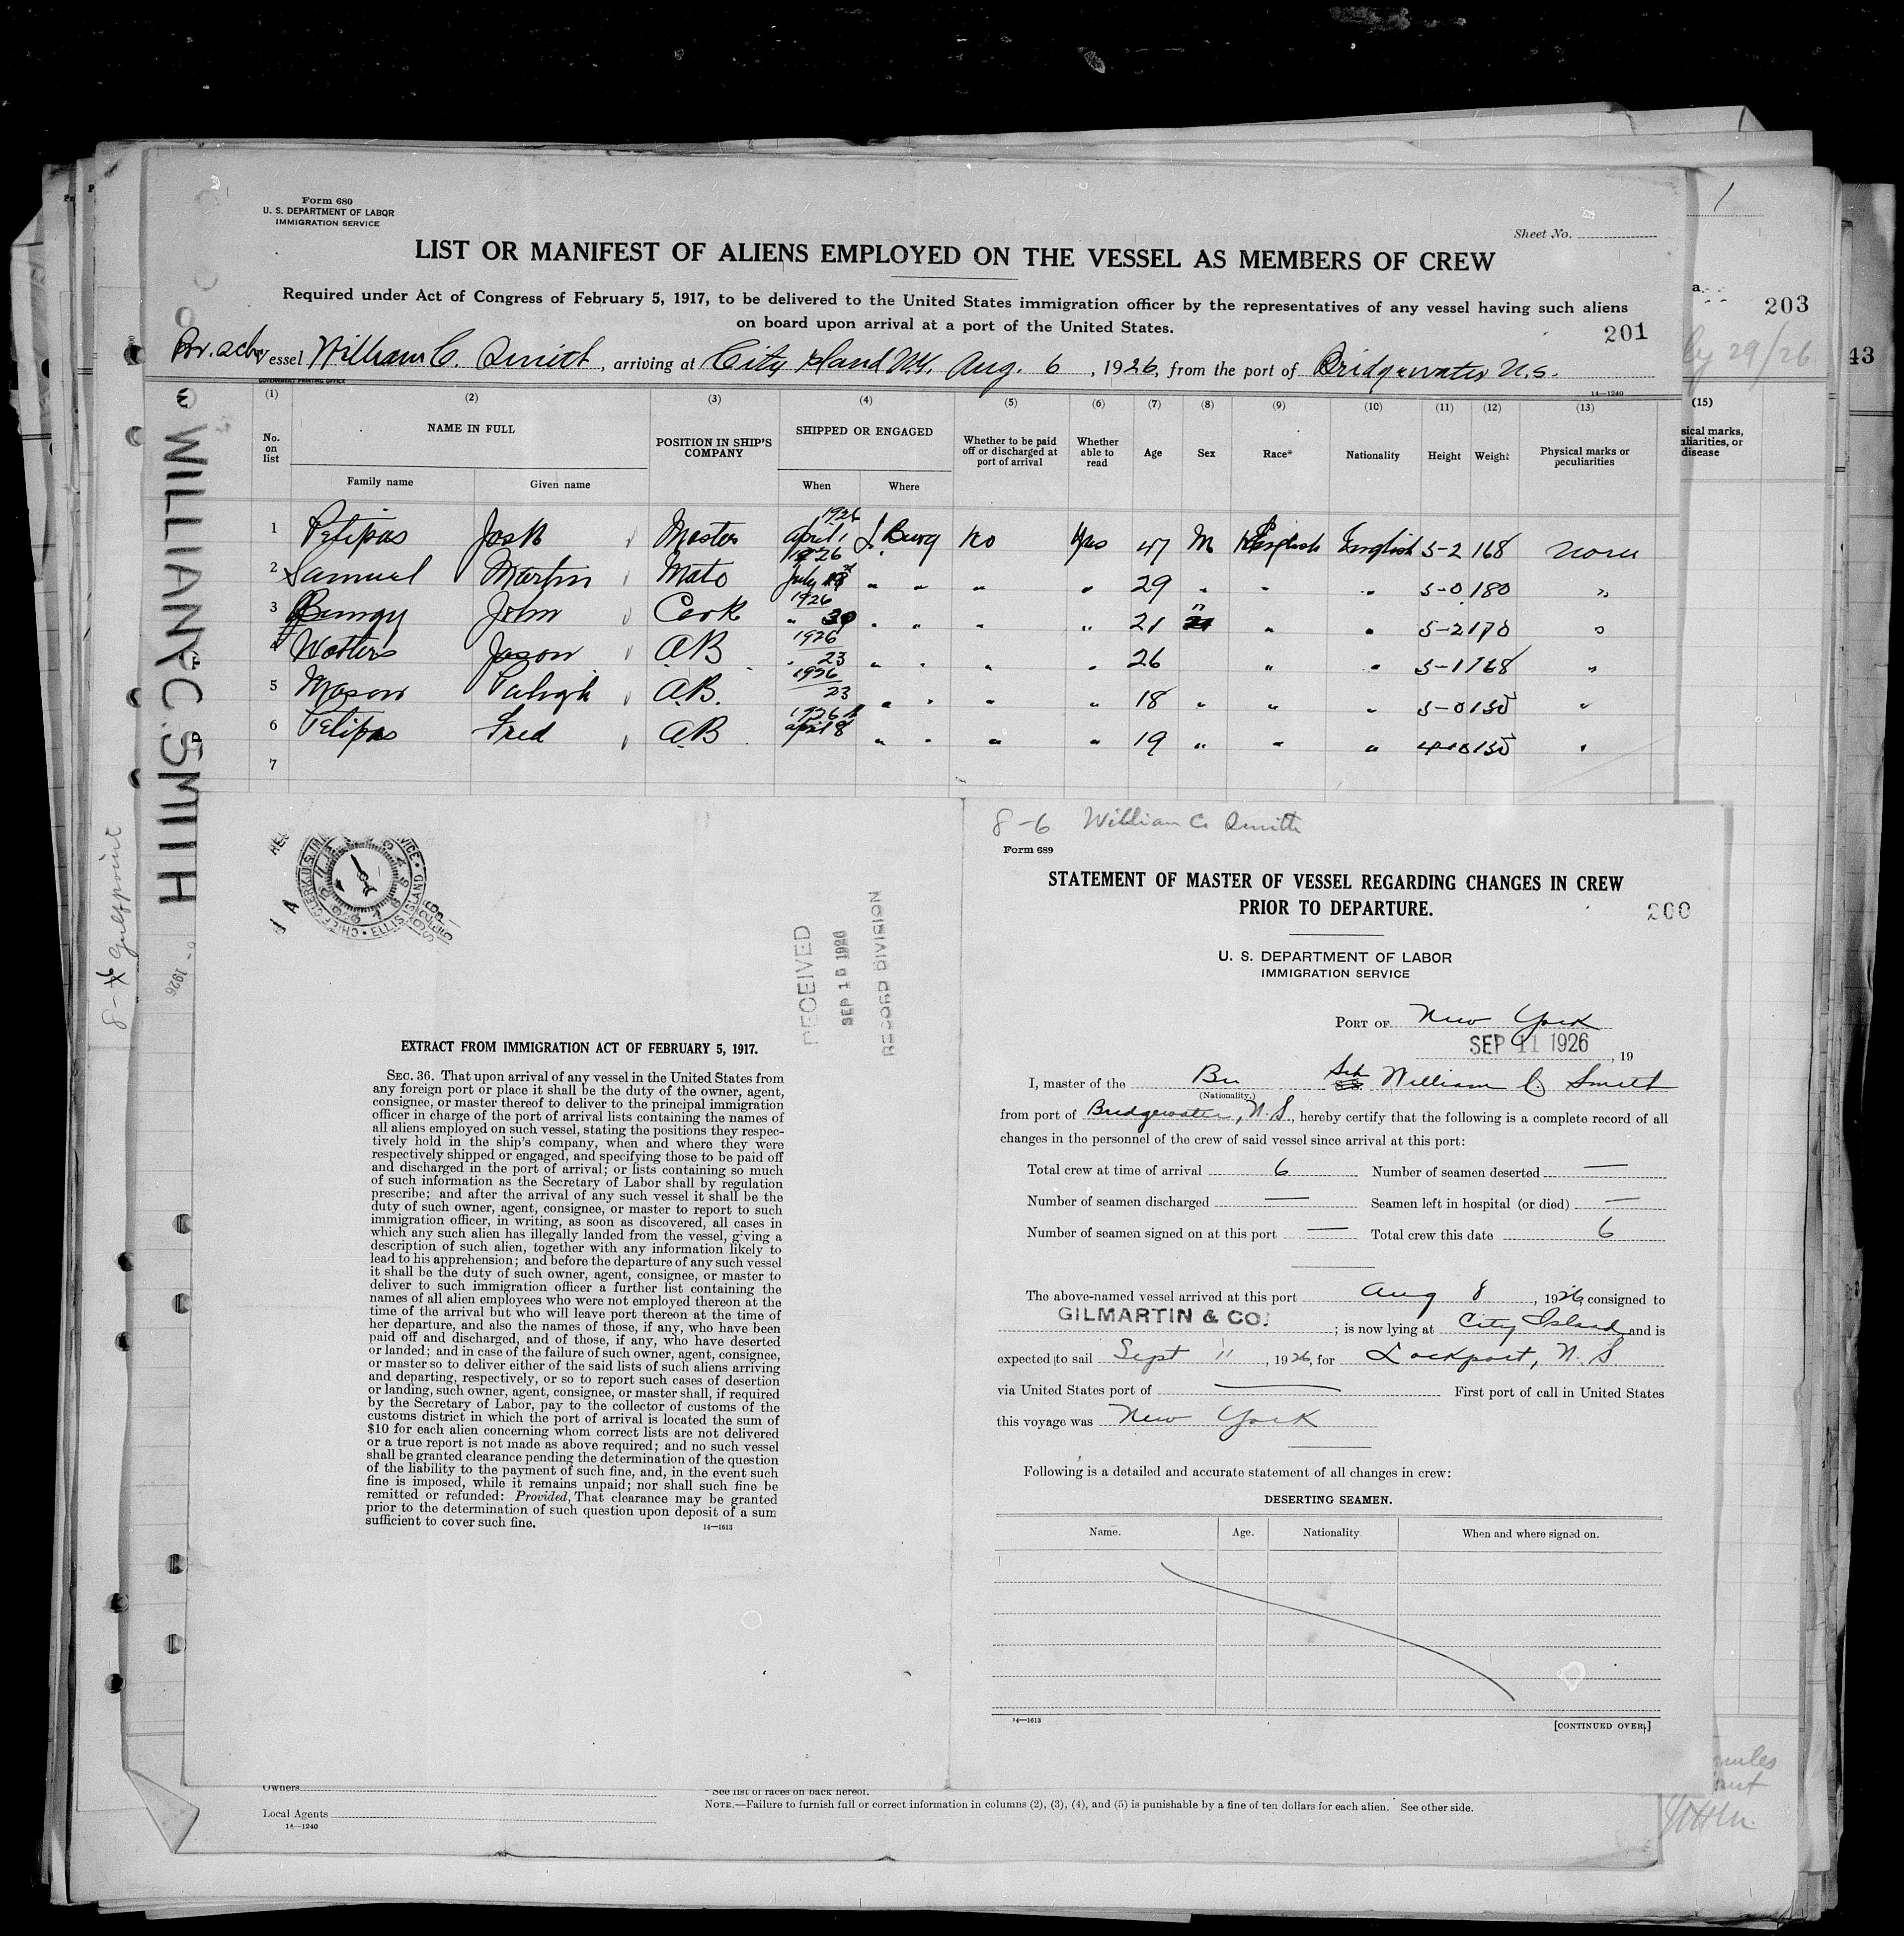 Form 680
U. S. DEPARTMENT OF LABOR
IMMIGRATION SERVICE
Sheet No.
LIST OR MANIFEST OF ALIENS EMPLOYED ON THE VESSEL AS MEMBERS OF CREW
Required under Act of Congress of February 5, 1917, to be delivered to the United States immigration officer by the representatives of any vessel having such aliens
on board upon arrival at a port of the United States.
201
Vessel William C. Smith, arriving at City Island N.Y. Aug. 6, 1926, from the port of Bridgewater N.S.
GOVERNMENT PRINTING OFFICE
14—1240
(1) (2) (3) (4) (5) (6) (7) (8) (9) (10) (11) (12) (13)
No. on list
NAME IN FULL
Family name
Given name
POSITION IN SHIP'S COMPANY
SHIPPED OR ENGAGED
When
Where
Whether to be paid off or discharged at port of arrival
Whether able to read
Age
Sex
Race*
Nationality
Height
Weight
Physical marks or peculiarities
1 Petipas Jos Master 1926 April 1 L. Burg No Yes 47 M English English 5-2 168 none
2 Samuel Martin Mate 1926 July " " " " 29 " " " 5-0 180 "
3 John Cook 1926 " 30 " " " " 21 " " " 5-2 170 "
4 Wotters Jason A.B. 1926 " 23 " " " " 26 " " 5-1 168 "
5 Mason A.B. 1926 23 " " " " 18 " " " 5-0 150 "
6 Petipas Fred A.B. 1926 April 8 " " " " 19 " " " 150 "
7
WILLIAM C. SMITH
1926
8-6 Gulfpoint
203
43
29/26
(15)
sical marks,
uliarities, or
disease
CHIEF CLERK U.S.
ELLIS ISLAND
RECEIVED
SEP 1926
RECORD DIVISION
EXTRACT FROM IMMIGRATION ACT OF FEBRUARY 5, 1917.
SEC. 36. That upon arrival of any vessel in the United States from
any foreign port or place it shall be the duty of the owner, agent,
consignee, or master thereof to deliver to the principal immigration
officer in charge of the port of arrival lists containing the names of
all aliens employed on such vessel, stating the positions they respec-
tively hold in the ship's company, when and where they were
respectively shipped or engaged, and specifying those to be paid off
and discharged in the port of arrival; or lists containing so much
of such information as the Secretary of Labor shall by regulation
prescribe; and after the arrival of any such vessel it shall be the
duty of such owner, agent, consignee, or master to report to such
immigration officer, in writing, as soon as discovered, all cases in
which any such alien has illegally landed from the vessel, giving a
description of such alien, together with any information likely to
lead to his apprehension; and before the departure of any such vessel
it shall be the duty of such owner, agent, consignee, or master to
deliver to such immigration officer a further list containing the
names of all alien employees who were not employed thereon at the
time of the arrival but who will leave port thereon at the time of
her departure, and also the names of those, if any, who have been
paid off and discharged, and of those, if any, who have deserted
or landed; and in case of the failure of such owner, agent, consignee,
or master so to deliver either of the said lists of such aliens arriving
and departing, respectively, or so to report such cases of desertion
or landing, such owner, agent, consignee, or master shall, if required
by the Secretary of Labor, pay to the collector of customs of the
customs district in which the port of arrival is located the sum of
$10 for each alien concerning whom correct lists are not delivered
or a true report is not made as above required; and no such vessel
shall be granted clearance pending the determination of the question
of the liability to the payment of such fine, and, in the event such
fine is imposed, while it remains unpaid; nor shall such fine be
remitted or refunded: Provided, That clearance may be granted
prior to the determination of such question upon deposit of a sum
sufficient to cover such fine.
14—1613
8-6 William C. Smith
Form 689
STATEMENT OF MASTER OF VESSEL REGARDING CHANGES IN CREW
PRIOR TO DEPARTURE.
200
U. S. DEPARTMENT OF LABOR
IMMIGRATION SERVICE
PORT OF New York
SEP 11 1926, 19
I, master of the Br Sch William C. Smith
(Nationality.)
from port of Bridgewater, N.S., hereby certify that the following is a complete record of all
changes in the personnel of the crew of said vessel since arrival at this port:
Total crew at time of arrival 6 Number of seamen deserted —
Number of seamen discharged — Seamen left in hospital (or died) —
Number of seamen signed on at this port — Total crew this date 6
The above-named vessel arrived at this port Aug 8, 1926, consigned to
GILMARTIN & CO.; is now lying at City Island and is
expected to sail Sept 11, 1926, for Lockport, N.S.
via United States port of — First port of call in United States
this voyage was New York
Following is a detailed and accurate statement of all changes in crew:
DESERTING SEAMEN.
Name. Age. Nationality When and where signed on.
14—1613
[CONTINUED OVER.]
Owners
Local Agents
14—1240
* See list of races on back hereof.
NOTE.—Failure to furnish full or correct information in columns (2), (3), (4), and (5) is punishable by a fine of ten dollars for each alien. See other side.